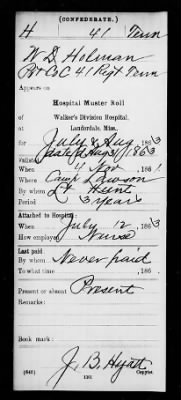 (CONFEDERATE.)
H 41 Tenn
W. D. Holman
Pvt Co C 41 Regt Tenn
Appears on
Hospital Muster Roll
of
Walker's Division Hospital,
Lauderdale, Miss.
for July & Aug, 1863
dated Aug 31 1863
Enlisted:
When 4 Nov, 1861
Where Camp
By whom Lt Hunt
Period 3 years
Attached to Hospital:
When July 12, 1863
How employed Nurse
Last paid:
By whom Never paid
To what time , 186 .
Present or absent Present
Remarks:
Book mark:
J. B. Hyatt
(646) Copyist.